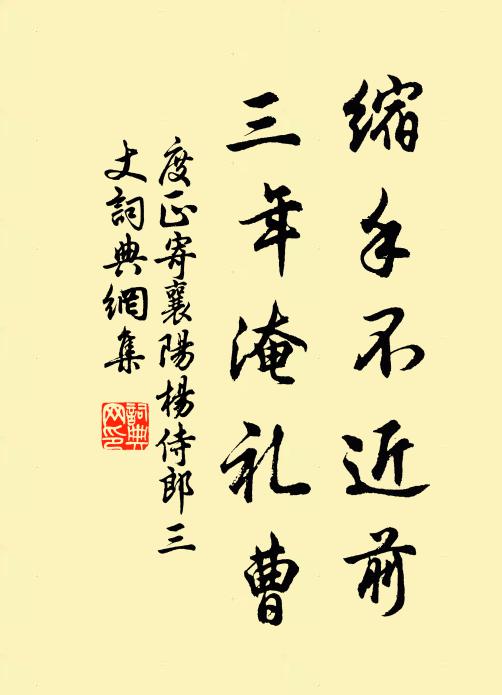 縮手不近前
三年淹礼曹
度正寄襄陽楊侍郎三
丈詞典網集
詞典
网印